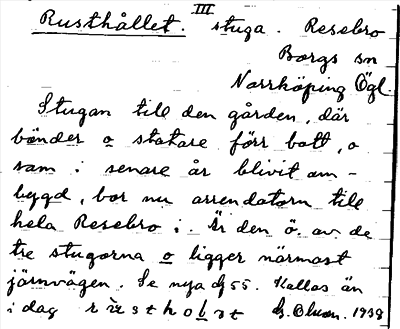 III
Rusthållet. stuga. Resebro
Borgs sn
Norrköping Ögl.
Stugan till den gården, där
bönder o statare förr bott, o
som i senare år blivit om-
byggd, bor nu arrendatorn till
hela Resebro i. Är den ö. av de
tre stugorna o ligger närmast
järnvägen. Se nya 55. Kallas än
i dag G. Olson. 1938